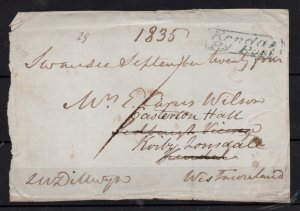 29
1835
Kendal
Py Post
Swansea September twenty four
Mrs E. Carus Wilson
Casterton Hall
Kirby Lonsdale
Kendal
LWDillwyn
Westmoreland